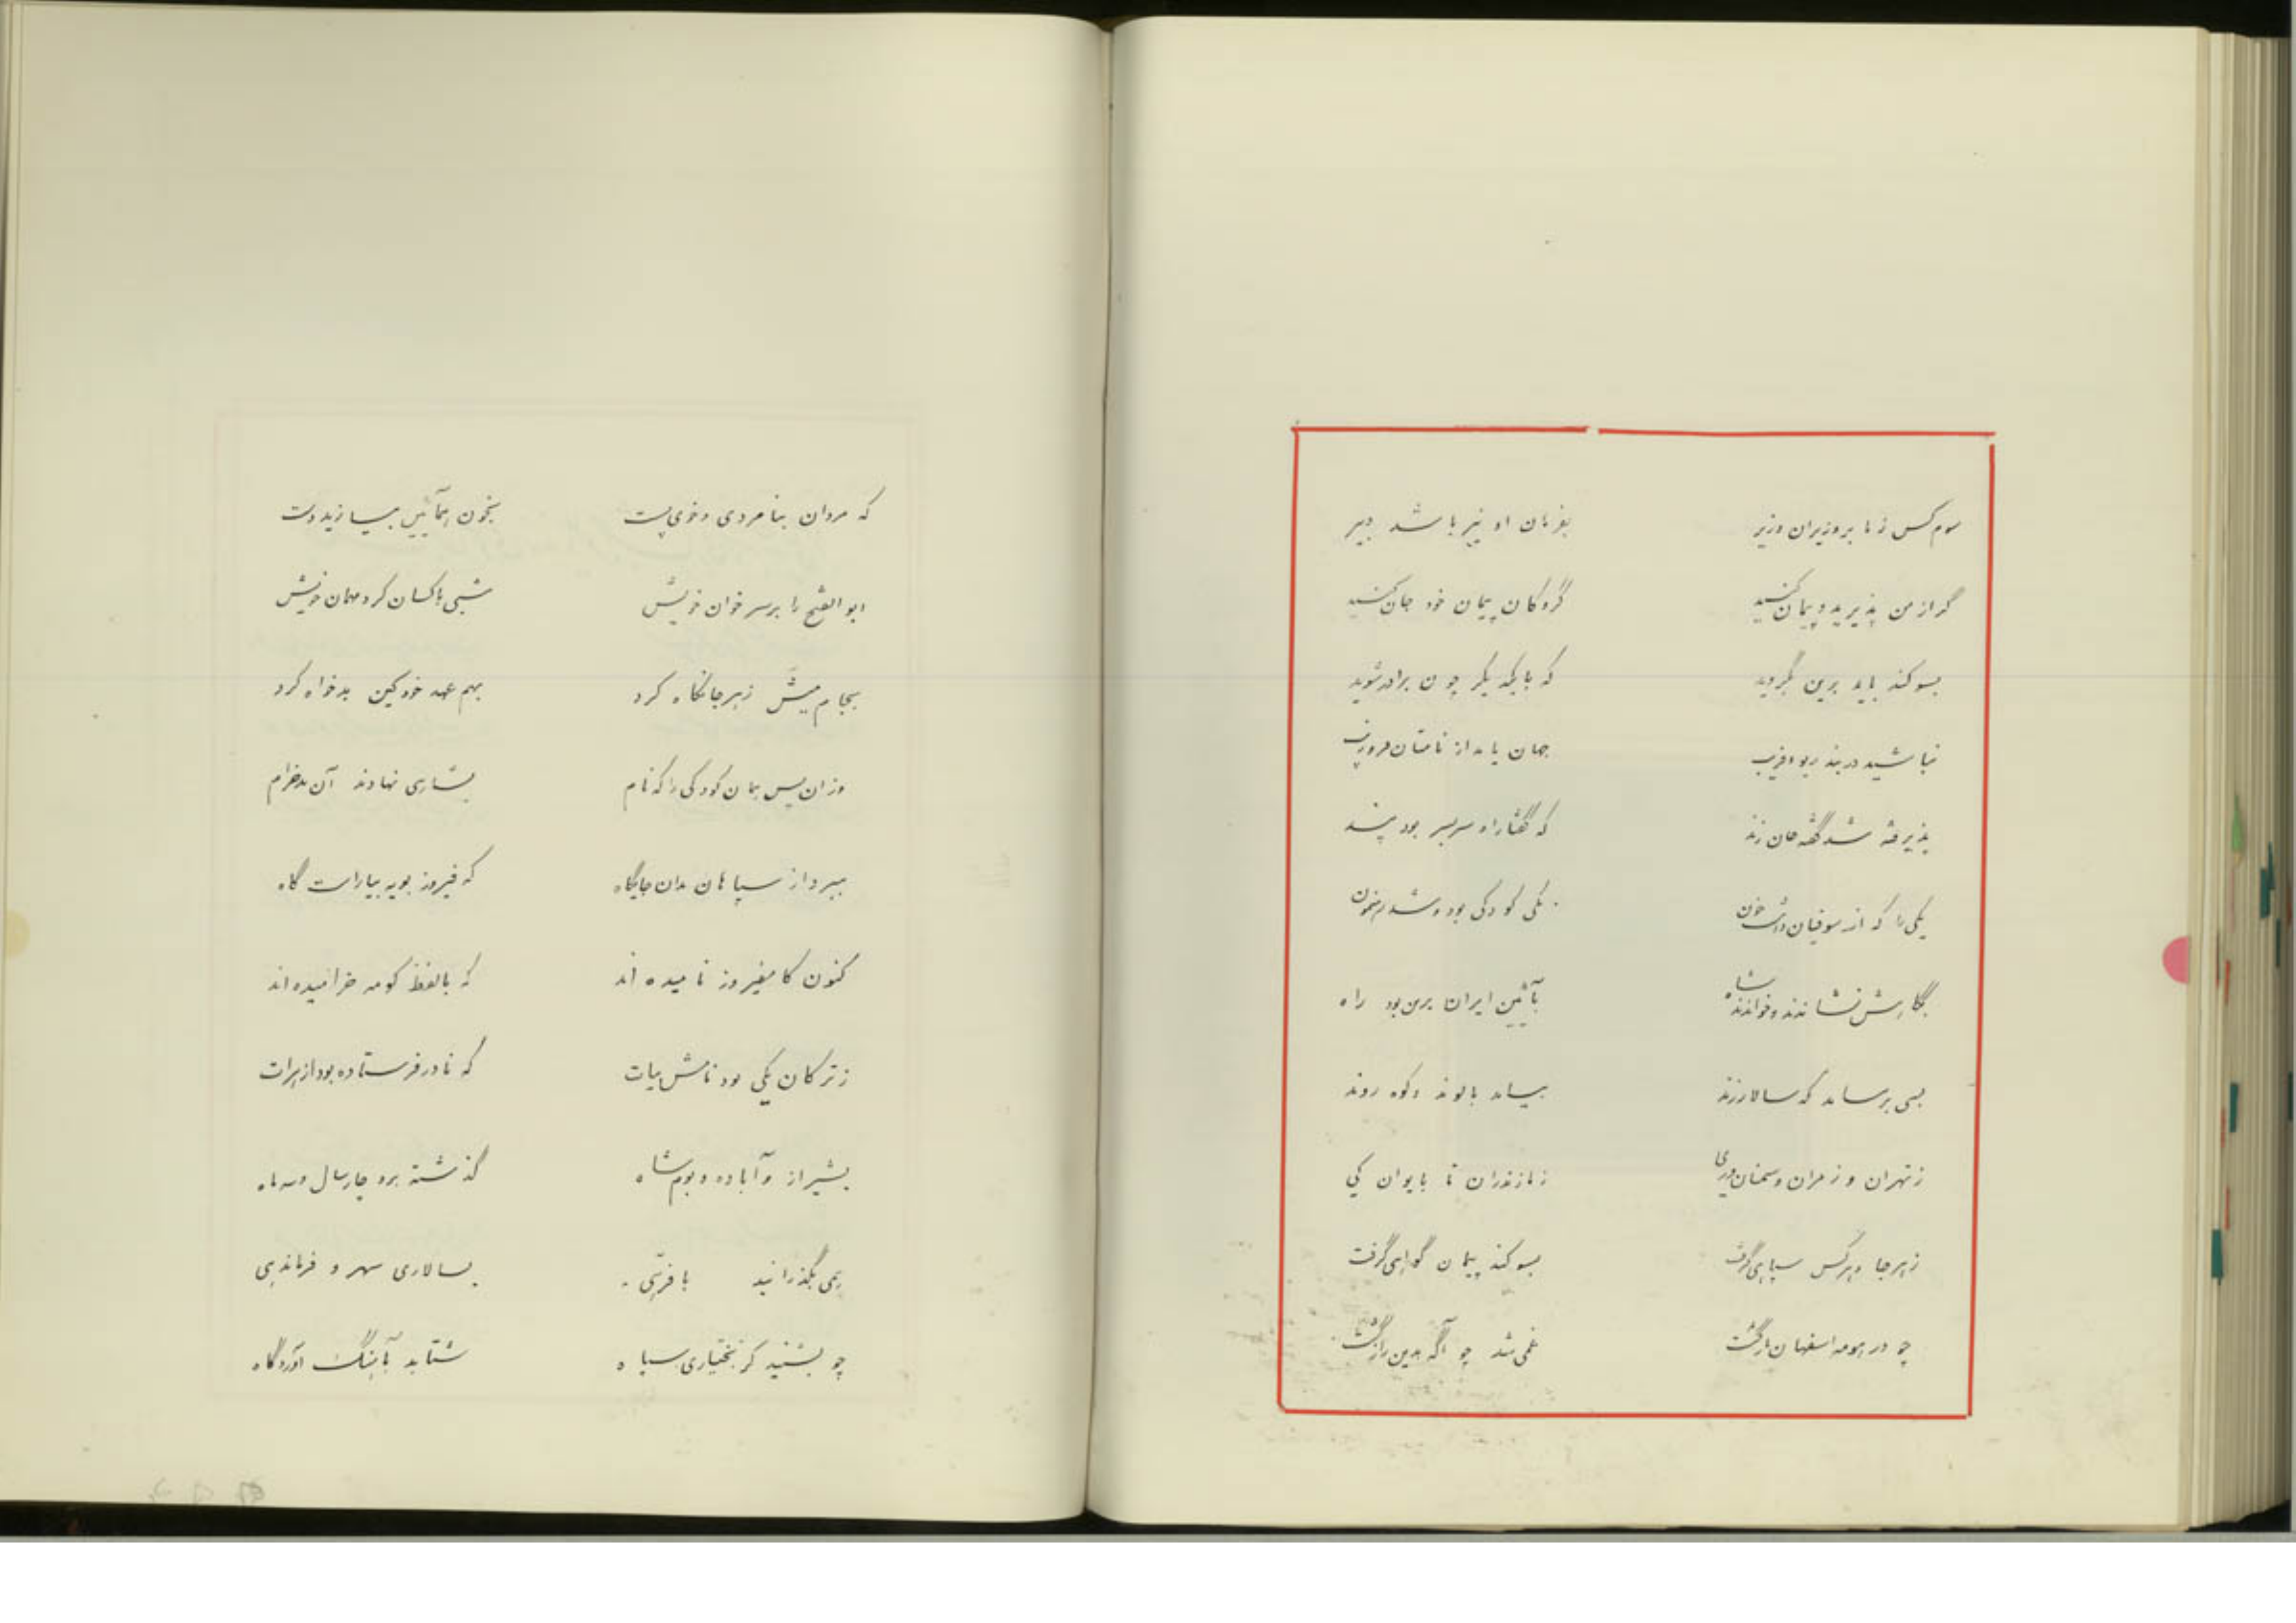 سوم کس ز ما بر وزیران وزیر بفرمان او نیز باشد دبیر
گر از من پذیرید و پیمان کنید گروگان پیمان خود جان کنید
بسوگند باید برین بگروید که با یکدیگر چون برادر شوید
نباشید در بند ریو و فریب جهان یابد از نامتان فر و زیب
پذیرفته شد گفته خان زند که گفتار او سربسر بود پند
یکی را که از صوفیان داشت خون یکی کودکی بود و شد رهنمون
بگاهش نشاندند و خواندند شاه بآئین ایران برین بود راه
بسی بر سامد که سالار زند بیامد بالوند و کوه روند
ز تهران و زمران و سمنان و ری ز مازندران تا بایوان کی
ز هر جا و هر کس سپاهی گرفت بسوگند پیمان گواهی گرفت
چو در بومه اسفهان بازگشت غمی شد چو آگه بدین راز گشت
که مردان بنامردی و خوی پست بخون هم‌آئین بیازید دست
ابوالفتح را بر سر خوان خویش شبی با کسان کرد مهمان خویش
بجام میش زهر جانکاه کرد بهم عهد خود کین بدخواه کرد
وزان پس همان کودکی را که نام بشاهی نهادند آن بدخرام
ببرد از سپاهان بدان جایگاه که فیروز بویه بیاراست گاه
کنون کامفیروز نامیده‌اند که بالفظ کومه خرامیده‌اند
ز ترکان یکی بود نامش بیات که نادر فرستاده بود از هرات
بشیراز و آباده و بوم شاه گذشته برو چار سال و سه ماه
همی بگذرانید با فرهی بسالاری شهر و فرماندهی
چو بشنید کز بختیاری سپاه شتابد بآهنگ آوردگاه